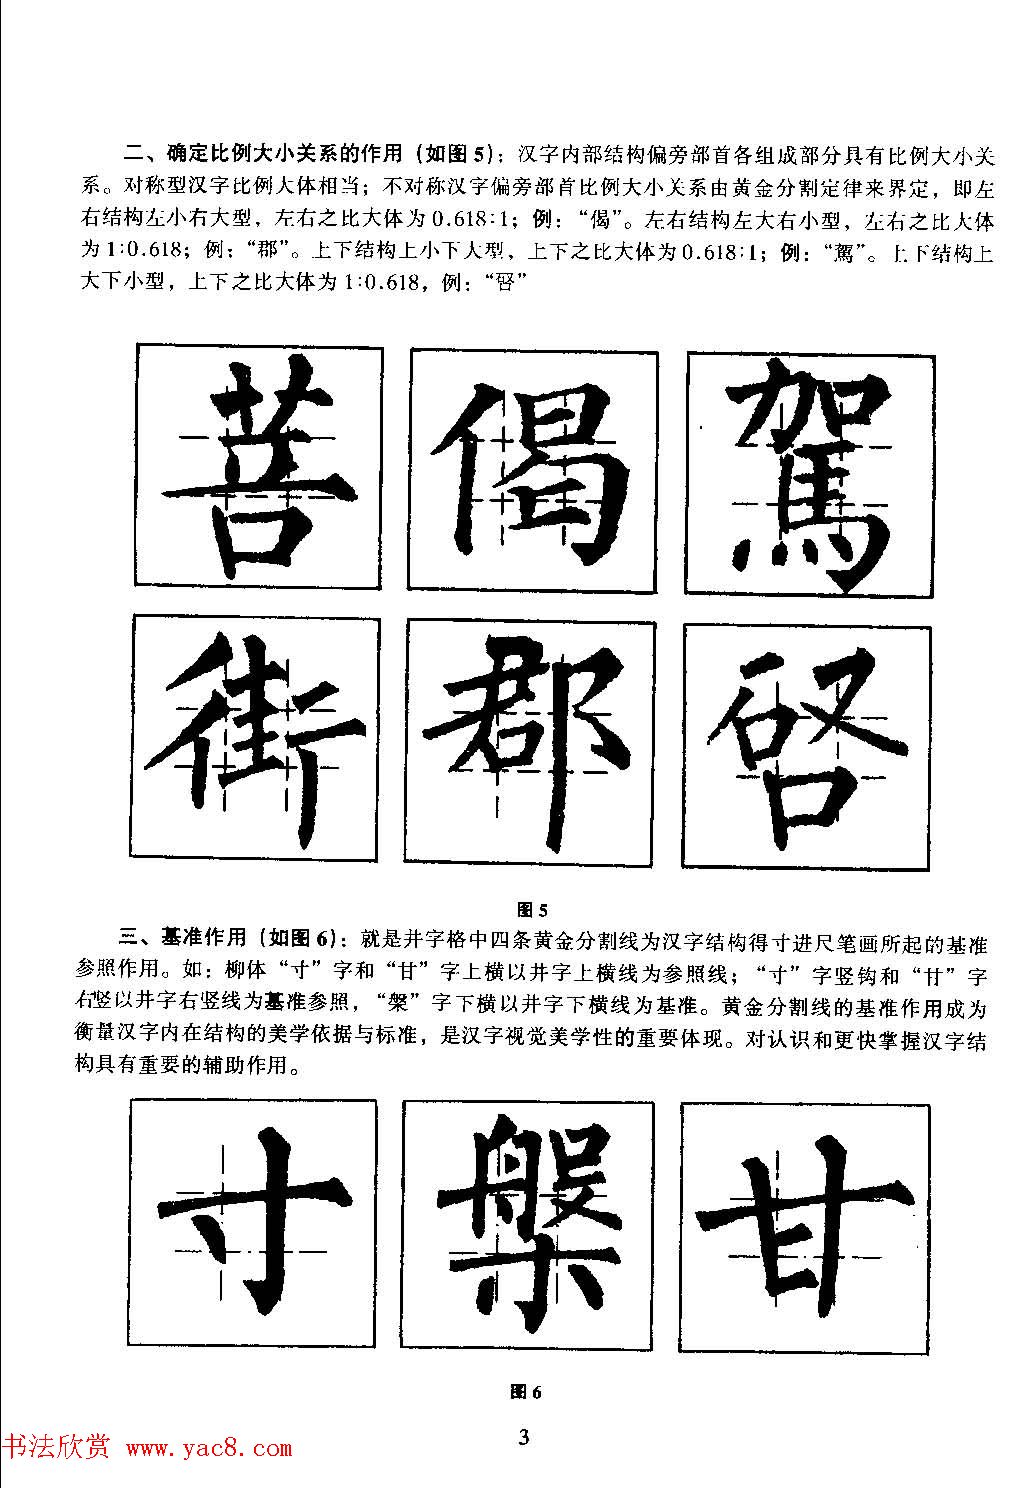 二、确定比例大小关系的作用（如图5）：汉字内部结构偏旁部首各组成部分具有比例大小关
系。对称型汉字比例大体相当；不对称汉字偏旁部首比例大小关系由黄金分割定律来界定，即左
右结构左小右大型，左右之比大体为0.618∶1；例：“偈”。左右结构左大右小型，左右之比大体
为1∶0.618；例：“郡”。上下结构上小下大型，上下之比大体为0.618∶1；例：“駕”。上下结构上
大下小型，上下之比大体为1∶0.618，例：“唘”
菩 偈 駕
街 郡
图5
三、基准作用（如图6）：就是井字格中四条黄金分割线为汉字结构得寸进尺笔画所起的基准
参照作用。如：柳体“寸”字和“甘”字上横以井字上横线为参照线；“寸”字竖钩和“甘”字
右竖以井字右竖线为基准参照，“槃”字下横以井字下横线为基准。黄金分割线的基准作用成为
衡量汉字内在结构的美学依据与标准，是汉字视觉美学性的重要体现。对认识和更快掌握汉字结
构具有重要的辅助作用。
寸 槃 甘
图6
3
书法欣赏 www.yac8.com